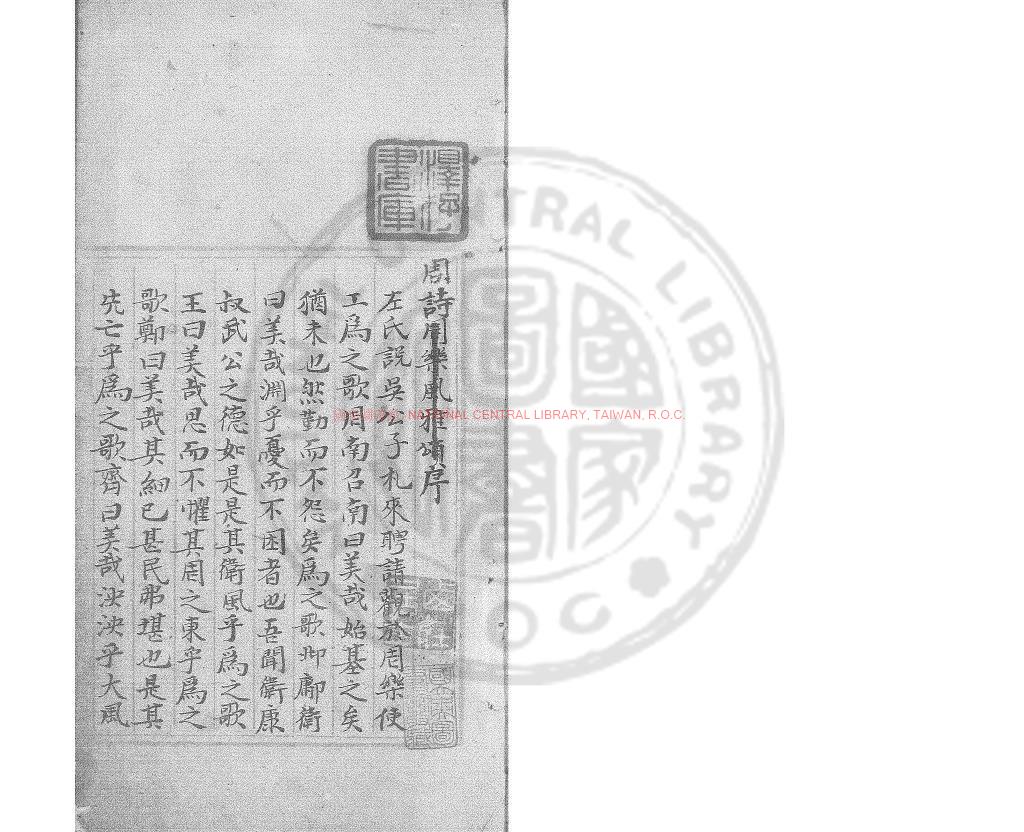 周詩周樂風雅頌序
左氏說吳公子札來聘請觀於周樂使
工爲之歌周南召南曰美哉始基之矣
猶未也然勤而不怨矣爲之歌邶鄘衛
曰美哉淵乎憂而不困者也吾聞衛康
叔武公之德如是是其衛風乎爲之歌
王曰美哉思而不懼其周之東乎爲之
歌鄭曰美哉其細已甚民弗堪也是其
先亡乎爲之歌齊曰美哉泱泱乎大風
澤存書庫
NATIONAL CENTRAL LIBRARY, TAIWAN, R.O.C.
CENTRAL LIBRARY
R.O.C.
國家圖書館